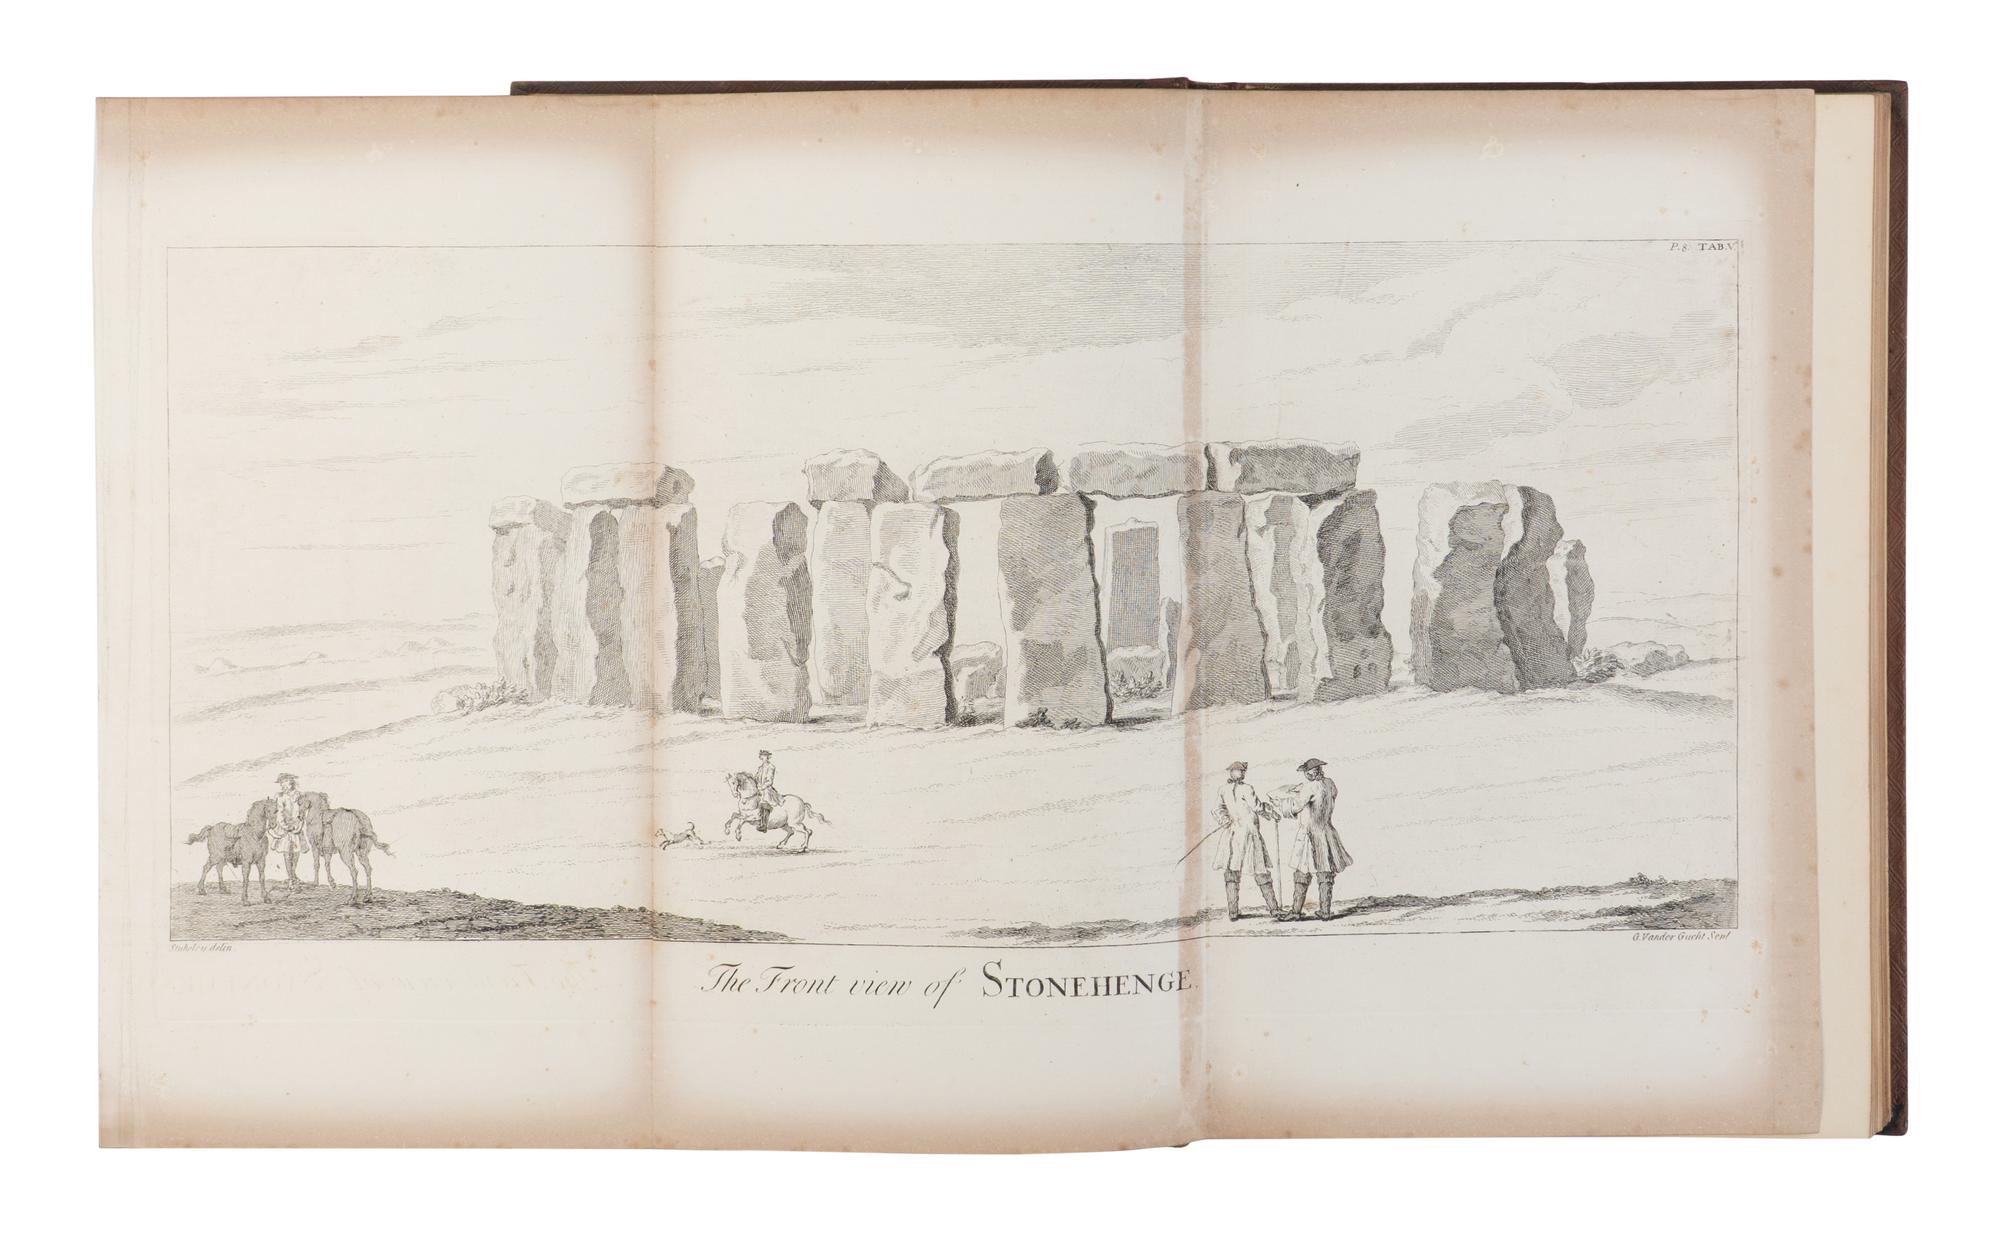 P. 8. TAB.V.
Stukeley delin.
G. Vander Gucht Scul
The Front view of STONEHENGE.